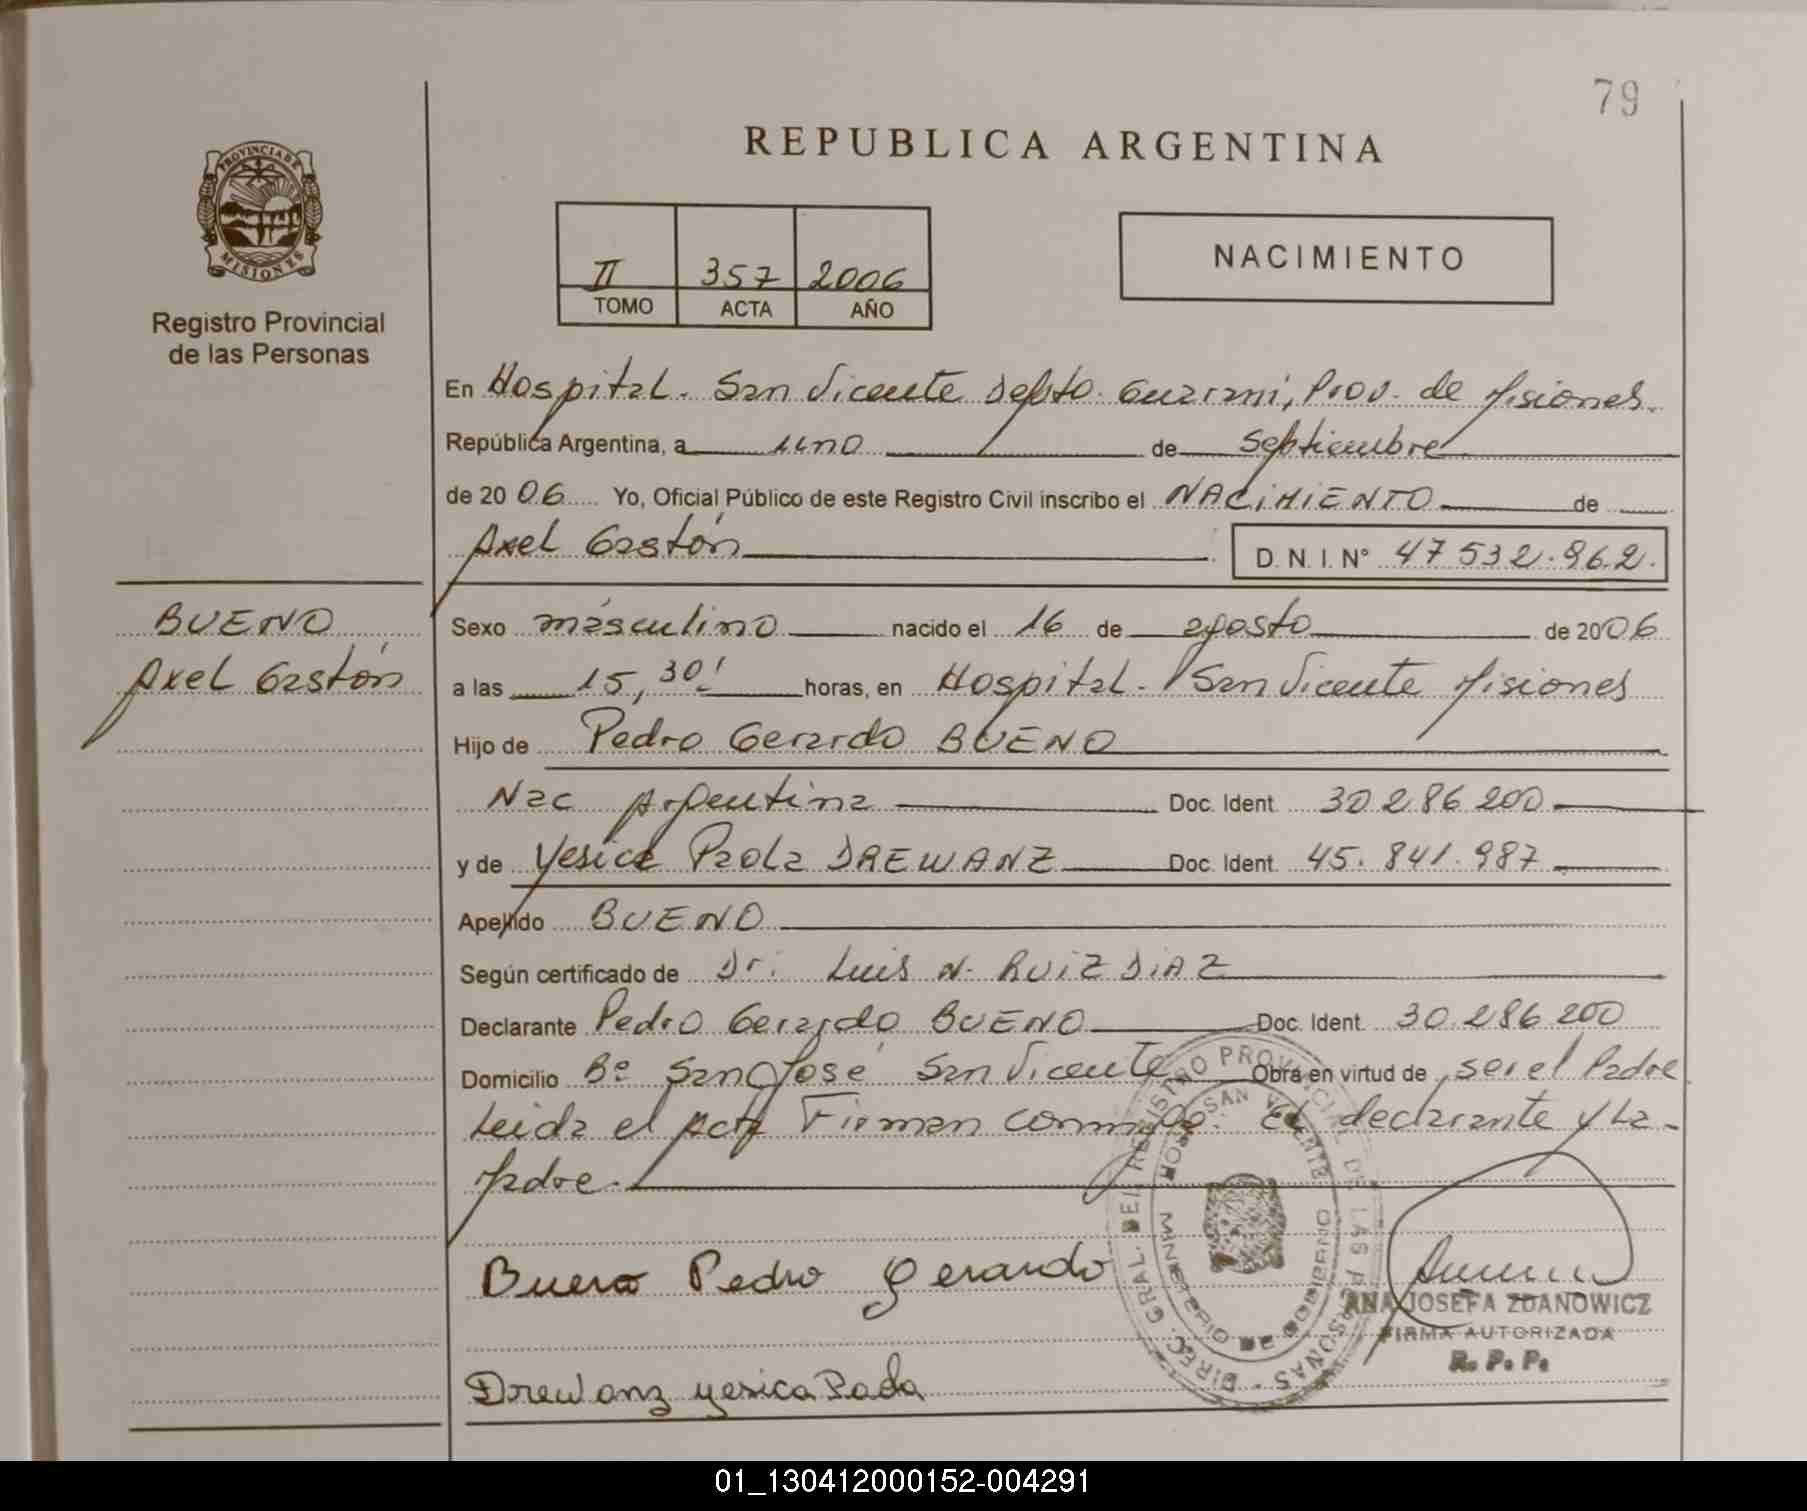 79
REPUBLICA ARGENTINA
PROVINCIA DE
MISIONES
Registro Provincial
de las Personas
II 357 2006
TOMO ACTA AÑO
NACIMIENTO
En Hospital. San Vicente Depto. Guaraní, Prov. de Misiones.
República Argentina, a uno de Septiembre
de 20 06 Yo, Oficial Público de este Registro Civil inscribo el NACIMIENTO de
Axel Gastón
D. N. I. N° 47 532.962.
BUENO
Axel Gastón
Sexo masculino nacido el 16 de agosto de 2006
a las 15,30' horas, en Hospital. San Vicente Misiones
Hijo de Pedro Gerardo BUENO
Nac Argentina Doc. Ident. 30.286.200
y de Yesica Paola DREWANZ Doc. Ident. 45.841.987
Apellido BUENO
Según certificado de Dr. Luis N. RUIZ DIAZ
Declarante Pedro Gerardo BUENO Doc. Ident. 30.286.200
Domicilio B° San José San Vicente Obra en virtud de ser el Padre
Leida el Acta Firman conmigo. El declarante y La
Madre.
DIREC. GRAL. DEL REGISTRO PROVINCIAL DE LAS PERSONAS
HOSP. SAN VICENTE
MINISTERIO DE GOBIERNO
Bueno Pedro Gerardo
ANA JOSEFA ZDANOWICZ
FIRMA AUTORIZADA
R. P. P.
Drewanz yesica Paola
01_130412000152-004291